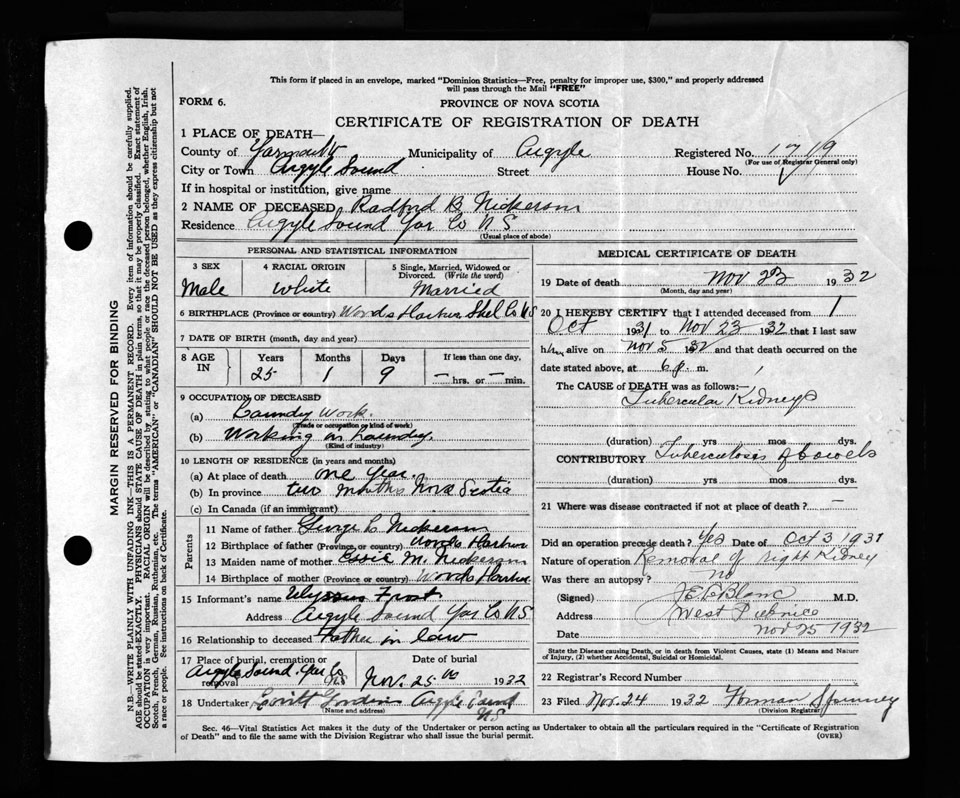 This form if placed in an envelope, marked "Dominion Statistics—Free, penalty for improper use, $300," and properly addressed
will pass through the Mail "FREE"
FORM 6.
PROVINCE OF NOVA SCOTIA
CERTIFICATE OF REGISTRATION OF DEATH
1 PLACE OF DEATH—
County of Yarmouth Municipality of Argyle Registered No. 1719
(For use of Registrar General only)
City or Town Argyle Sound Street House No.
If in hospital or institution, give name
2 NAME OF DECEASED Radford B. Nickerson
Residence Argyle Sound Yar Co N S
(Usual place of abode)
PERSONAL AND STATISTICAL INFORMATION
3 SEX 4 RACIAL ORIGIN 5 Single, Married, Widowed or Divorced. (Write the word)
Male White Married
6 BIRTHPLACE (Province or country) Woods Harbor Shel Co NS
7 DATE OF BIRTH (month, day and year)
8 AGE IN Years Months Days If less than one day,
25 1 9 — hrs. or — min.
9 OCCUPATION OF DECEASED
(a) Laundry Work.
(Trade or occupation or kind of work)
(b) Working in Laundry.
(Kind of industry)
10 LENGTH OF RESIDENCE (in years and months)
(a) At place of death one Year
(b) In province two months Nova Scotia
(c) In Canada (if an immigrant)
Parents
11 Name of father George L Nickerson
12 Birthplace of father (Province or country) Woods Harbor
13 Maiden name of mother M. Nickerson
14 Birthplace of mother (Province or country) Woods Harbor
15 Informant's name Ulyssus Frost
Address Argyle Sound Yar Co NS
16 Relationship to deceased Father in law
17 Place of burial, cremation or removal Date of burial
Argyle Sound. Yar Co NS Nov. 25 1932
18 Undertaker Argyle Sound NS
(Name and address)
MEDICAL CERTIFICATE OF DEATH
19 Date of death Nov 23 1932
(Month, day and year)
20 I HEREBY CERTIFY that I attended deceased from 1
Oct 1931 to Nov 23 1932 that I last saw
him alive on Nov 5 1932 and that death occurred on the
date stated above, at 6 p. m.
The CAUSE of DEATH was as follows:—
Tubercular Kidneys
(duration) yrs mos dys.
CONTRIBUTORY Tuberculosis of bowels
(duration) yrs mos dys.
21 Where was disease contracted if not at place of death? —
Did an operation precede death? Yes Date of Oct 3 1931
Nature of operation Removal of right Kidney
Was there an autopsy? no
(Signed) J E LeBlanc M.D.
Address West Pubnico
Date Nov 25 1932
State the Disease causing Death, or in death from Violent Causes, state (1) Means and Nature
of Injury, (2) whether Accidental, Suicidal or Homicidal.
22 Registered Record Number
23 Filed Nov. 24 1932 Forman Spinney
(Division Registrar)
Sec. 46—Vital Statistics Act makes it the duty of the Undertaker or person acting as Undertaker to obtain all the particulars required in the "Certificate of Registration
of Death" and to file the same with the Division Registrar who shall issue the burial permit.
(OVER)
MARGIN RESERVED FOR BINDING
N.B.—WRITE PLAINLY WITH UNFADING INK—THIS IS A PERMANENT RECORD. Every item of information should be carefully supplied.
AGE should be stated EXACTLY. PHYSICIANS should STATE CAUSE OF DEATH in plain terms, so that it may be properly classified. Exact statement of
OCCUPATION is very important. RACIAL ORIGIN will be described by stating to what people or race the deceased person belonged, whether English, Irish,
Scotch, French, German, Russian, Ruthenian, etc. The terms "AMERICAN" or "CANADIAN" SHOULD NOT BE USED as they express citizenship but not
a race or people. See instructions on back of Certificate.